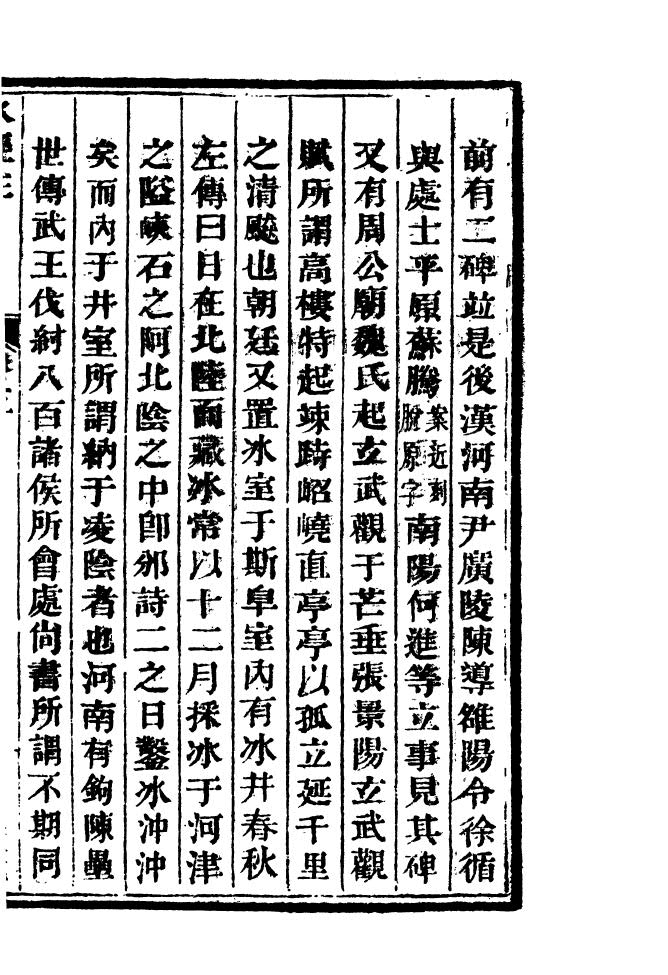 前有二碑竝是後漢河南尹廣陵陳導雒陽令徐循
與處士平原蘇騰案近刻脫原字南陽何進等立事見其碑
又有周公廟魏氏起立武觀于芒垂張景陽立武觀
賦所謂高樓特起竦跱岧嶢直亭亭以孤立延千里
之清飈也朝廷又置冰室于斯阜室內有冰井春秋
左傳曰日在北陸而藏冰常以十二月採冰于河津
之隘峽石之阿北陰之中卽邠詩二之日鑿冰沖沖
矣而內于井室所謂納于凌陰者也河南有鉤陳壘
世傳武王伐紂八百諸侯所會處尙書所謂不期同
水經注